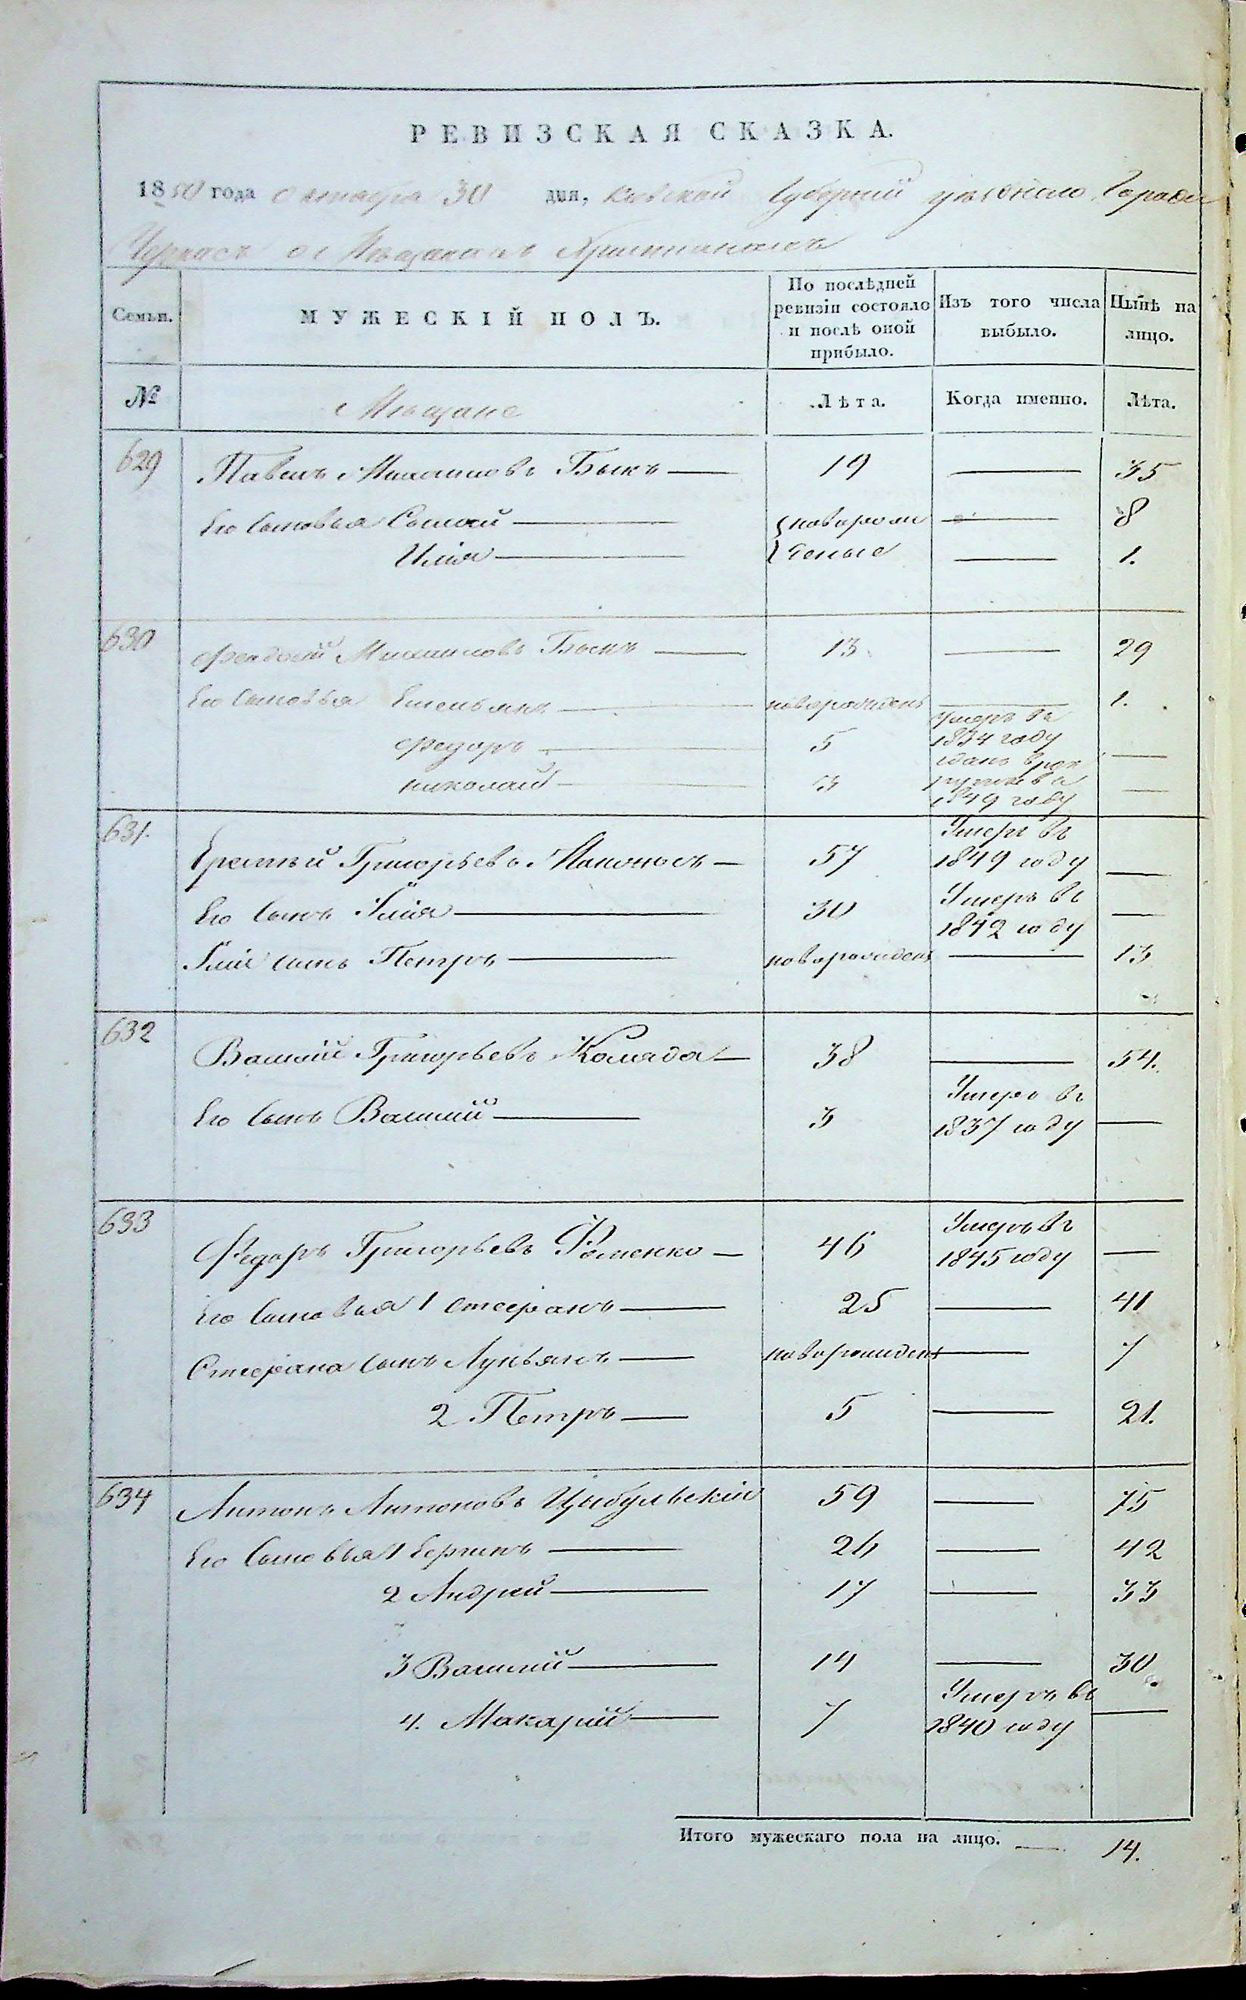 РЕВИЗСКАЯ СКАЗКА.
1850 года октября 30 дня, Киевской Губернии уѣзднаго Города
Черкасъ о Мѣщанахъ Христианахъ
Семьи. МУЖЕСКІЙ ПОЛЪ. По послѣдней ревизіи состояло и послѣ оной прибыло. Изъ того числа выбыло. Нынѣ на лицо.
№ Мѣщане Лѣта. Когда именно. Лѣта.
629 Павелъ Михаиловъ Быкъ — 19 — 35
Его Сыновья Сысой — новорож — 8
Илія — денные — 1.
630 Феодосій Михаиловъ Быкъ — 13 — 29
Его Сыновья Емельянъ — новорожденъ — 1.
Федоръ — 5 умеръ въ 1834 году —
Николай — 3 сданъ в рекруты в 1849 году —
631. Еремѣй Григорьевъ — 57 Умеръ въ 1849 году —
Его Сынъ Илія — 30 Умеръ въ 1842 году —
Иліи сынъ Петръ — новорожденъ — 13
632 Василій Григорьевъ Коляда — 38 — 54.
Его Сынъ Василій — 3 Умеръ въ 1837 году —
633 Федоръ Григорьевъ Фоменко — 46 Умеръ въ 1845 году —
Его Сыновья 1 Стефанъ — 25 — 41
Стефана сынъ Лукьянъ — новорожденъ — 7
2 Петръ — 5 — 21.
634 Антонъ Антоновъ Цыбульскій 59 — 75
Его Сыновья 1 — 26 — 42
2 Андрей — 17 — 33
3 Василій — 14 — 30
4. Макарій — 7 Умеръ въ 1840 году —
Итого мужескаго пола на лицо. — 14.